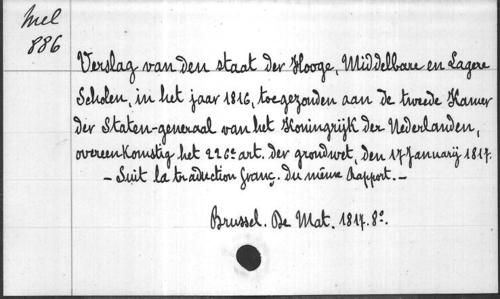 Mel
886
Verslag van den staat der Hooge, Middelbare en Lagere
Scholen, in het jaar 1816, toegezonden aan de tweede Kamer
der Staten-generaal van het Koningrijk der Nederlanden,
overeenkomstig het 226e art. der grondwet, den 17 Januarij 1817.
- Suit la traduction franç. du même Rapport. -
Brussel. De Mat. 1817. 8o.